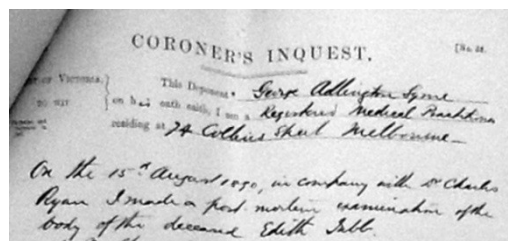 CORONER'S INQUEST.
[No.
of Victoria,
This Deponent George Adlington Syme
TO WIT
on h is oath saith, I am a Registered Medical Practitioner
residing at 74 Collins Street Melbourne
On the 15th August 1890, in company with Dr Charles
Ryan I made a post-mortem examination of the
body of the deceased Edith Tubb.